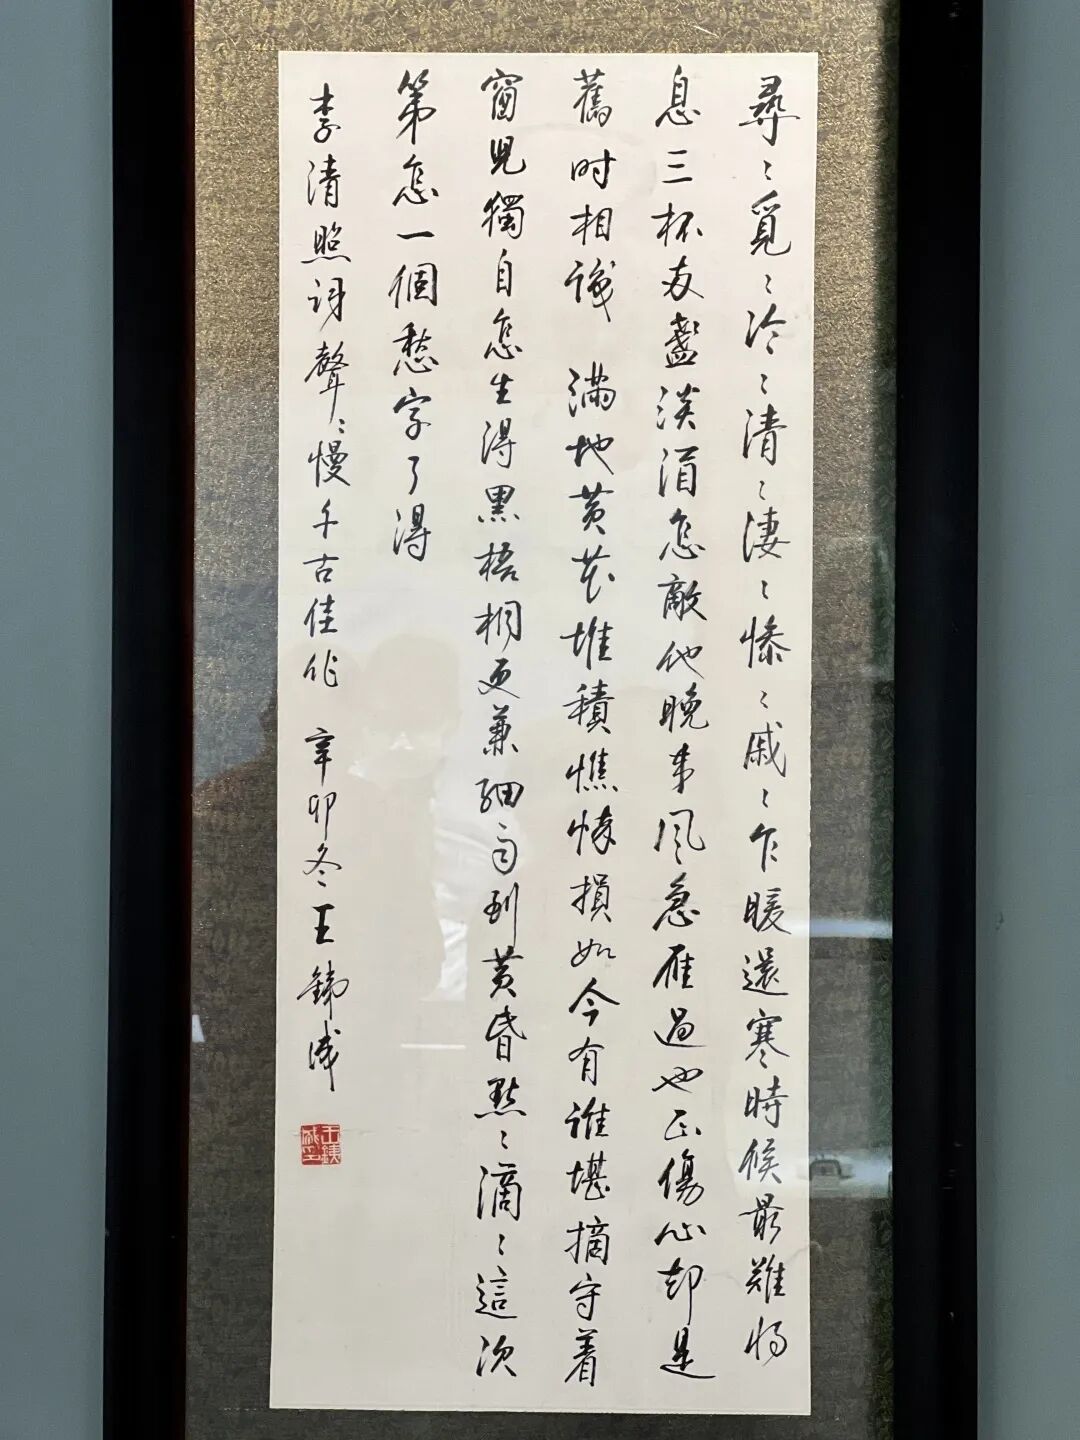 尋〻覓〻冷〻清〻淒〻慘〻戚〻乍暖還寒時候最難将
息三杯两盞淡酒怎敵他晚来風急雁過也正傷心却是
舊时相識 滿地黄花堆積憔悴損如今有誰堪摘守着
窗児獨自怎生得黑梧桐更兼細雨到黄昏點〻滴〻這次
第怎一個愁字了得
李清照詞聲〻慢千古佳作 辛卯冬王鐵成
王鐵成印